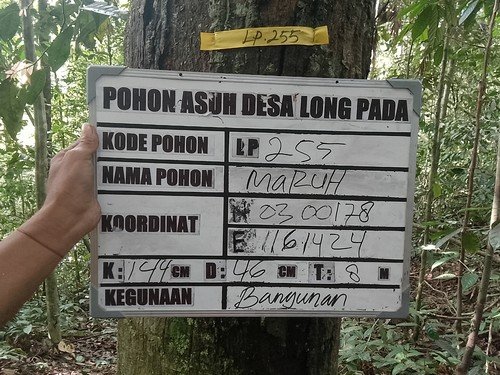 LP.255
POHON ASUH DESA LONG PADA
KODE POHON LP 255
NAMA POHON MaRUH
KOORDINAT N 03 00178
E 1161424
K: 144 CM D: 46 CM T: 8 M
KEGUNAAN Bangunan